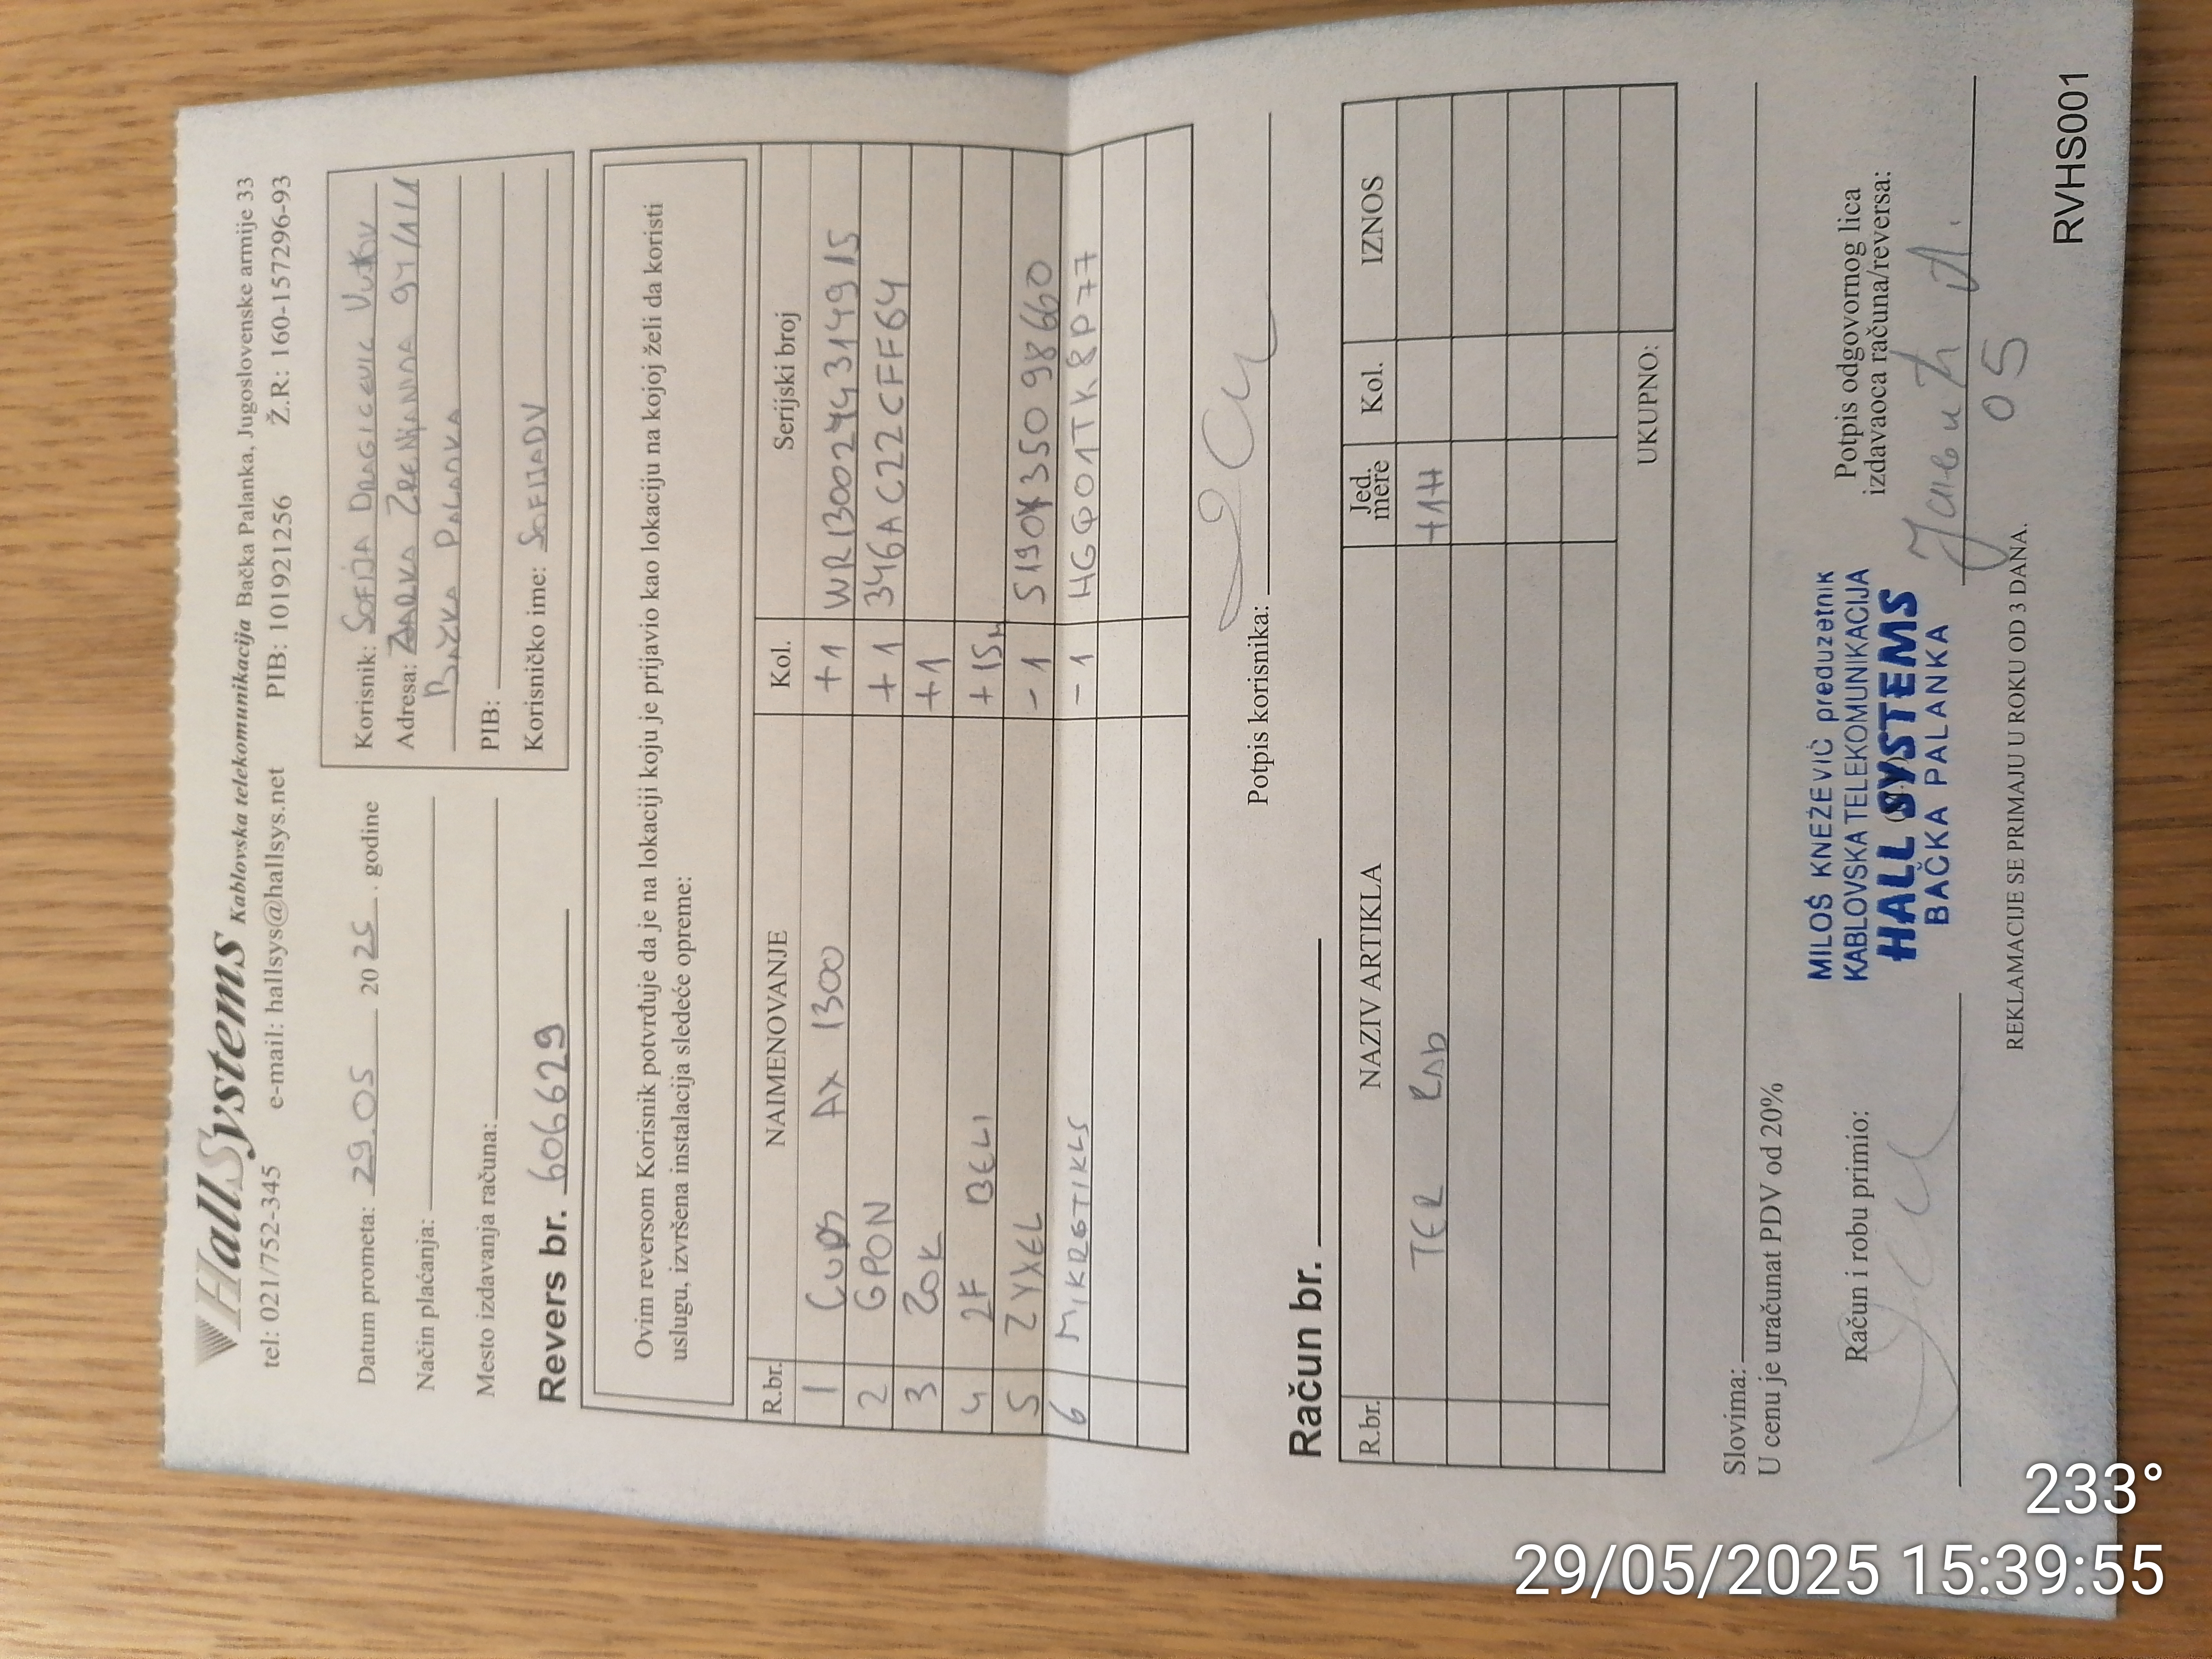 HallSystems Kablovska telekomunikacija Bačka Palanka, Jugoslovenske armije 33
tel: 021/752-345 e-mail: hallsys@hallsys.net PIB: 101921256 Ž.R: 160-157296-93
Datum prometa: 29.05 2025. godine
Način plaćanja:
Mesto izdavanja računa:
Revers br. 606629
Korisnik: SOFIJA DRAGICEVIC VUKOV
Adresa: ZARKA ZRENJANINA 94/111
BAČKA PALANKA
PIB:
Korisničko ime: SOFIJADV
Ovim reversom Korisnik potvrđuje da je na lokaciji koju je prijavio kao lokaciju na kojoj želi da koristi
uslugu, izvršena instalacija sledeće opreme:
R.br. NAIMENOVANJE Kol. Serijski broj
1 CUDY AX 1300 +1 
2 GPON +1 346AC22CFFF64
3 ZOK +1
4 2F BELI +15m
5 ZYXEL -1
6 -1 HGQ01TK8P77
Potpis korisnika:
Račun br.
R.br. NAZIV ARTIKLA Jed. mere Kol. IZNOS
TER RAD +1H
UKUPNO:
Slovima:
U cenu je uračunat PDV od 20%
Račun i robu primio:
MILOŠ KNEŽEVIĆ preduzetnik
KABLOVSKA TELEKOMUNIKACIJA
HALL SYSTEMS
BAČKA PALANKA
Potpis odgovornog lica
izdavaoca računa/reversa:
05
REKLAMACIJE SE PRIMAJU U ROKU OD 3 DANA.
RVHS001
233°
29/05/2025 15:39:55